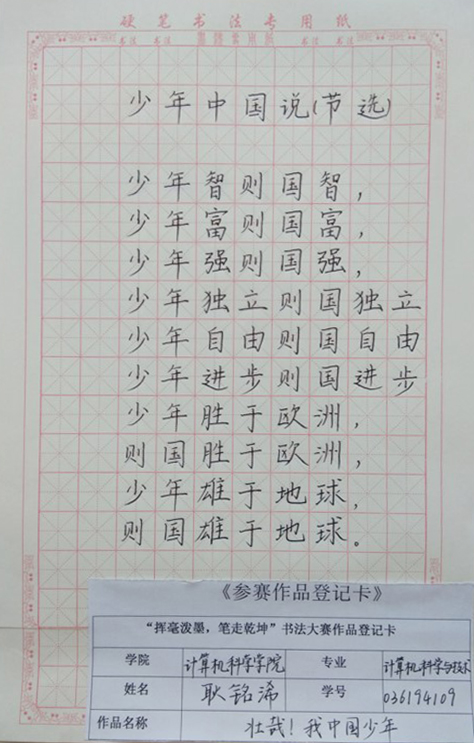 硬笔书法专用纸
书法 书法 书法 书法
少年中国说(节选)
少年智则国智,
少年富则国富,
少年强则国强,
少年独立则国独立
少年自由则国自由
少年进步则国进步
少年胜于欧洲,
则国胜于欧洲,
少年雄于地球,
则国雄于地球。
《参赛作品登记卡》
“挥毫泼墨,笔走乾坤”书法大赛作品登记卡
学院 计算机科学学院 专业 计算机科学与技术
姓名 耿铭浠 学号 036194109
作品名称 壮哉!我中国少年